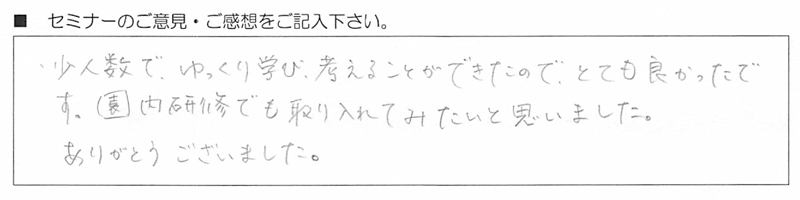 ■ セミナーのご意見・ご感想をご記入下さい。
・少人数で、ゆっくり学び、考えることができたので、とても良かったで
す。園内研修でも取り入れてみたいと思いました。
ありがとうございました。